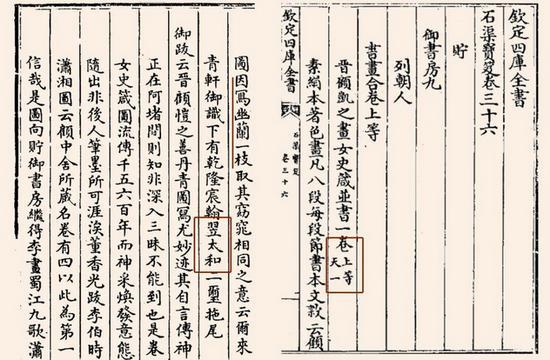 欽定四庫全書
石渠寶笈卷三十六
貯
御書房九
列朝人
書畫合卷上等
晉顧愷之畫女史箴並書一卷 上等 天一
素絹本著色畫凡八段每段節書本文款云顧
欽定四庫全書
石渠寶笈
卷三十六
圖因寫幽蘭一枝取其窈窕相同之意云爾來
青軒御識下有乾隆宸翰翌太和二璽拖尾
御跋云晉顧愷之善丹青圖寫尤妙迹其自言傳神
正在阿堵間則知非深入三昧不能到也是卷
女史箴圖流傳千五六百年而神采煥發意態
隨出非後人筆墨所可涯涘董香光跋李伯時
瀟湘圖云顧中舍所藏名卷有四以此為第一
信哉是圖向貯御書房繼得李畫蜀江九歌瀟